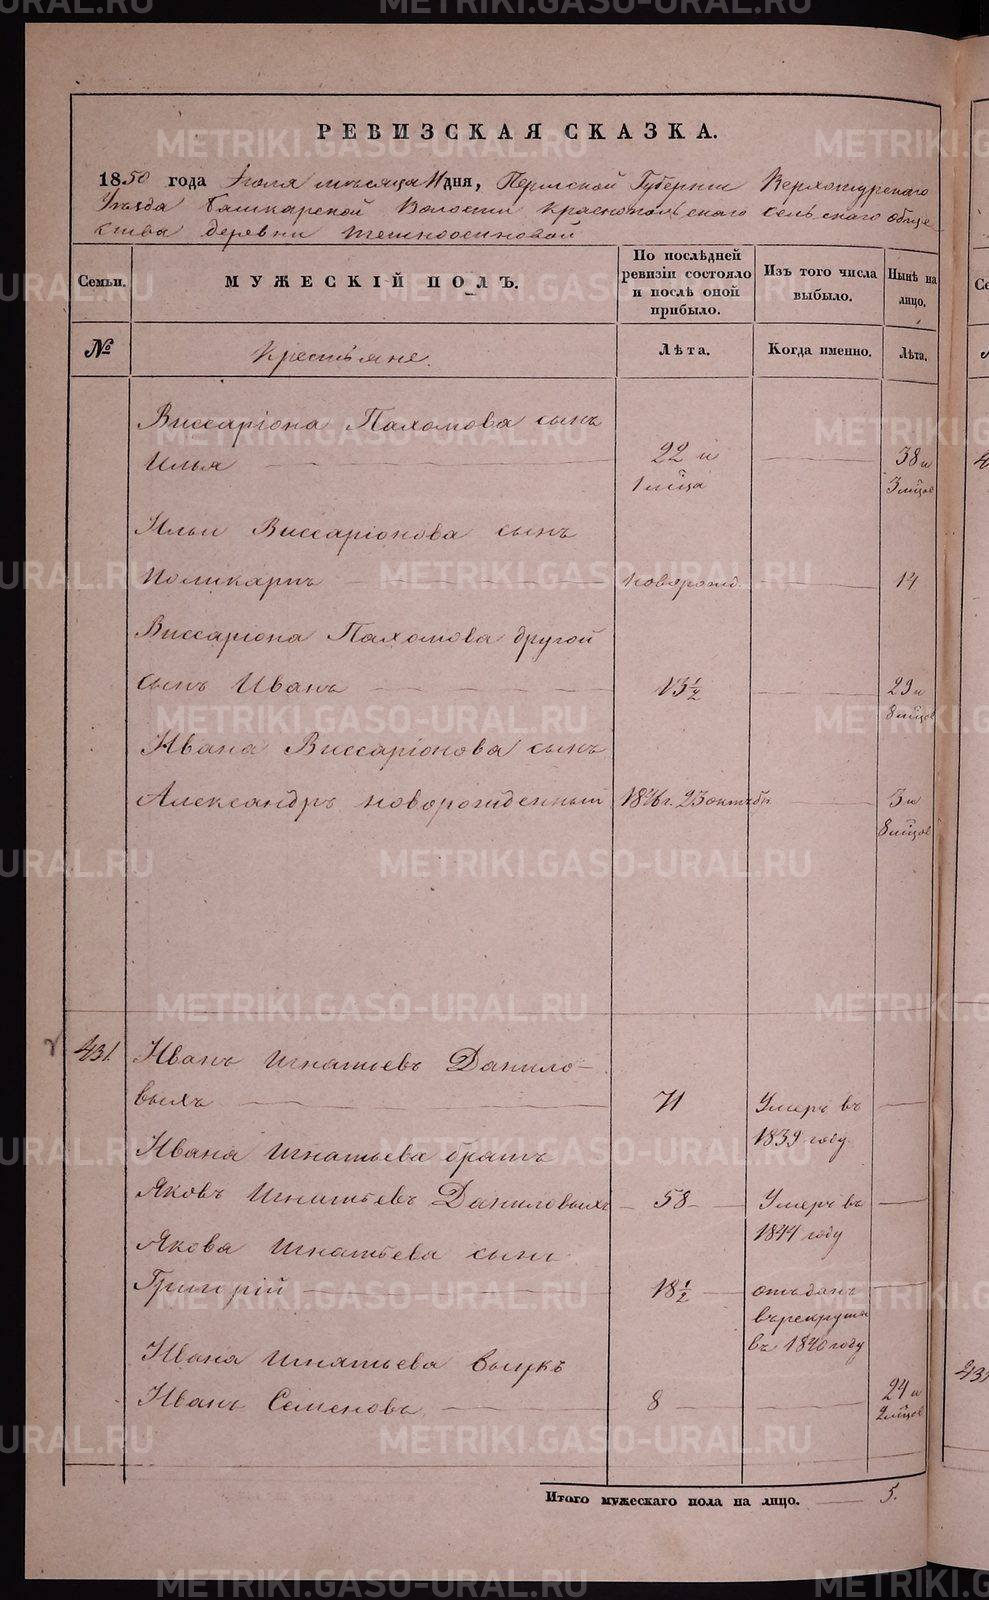 РЕВИЗСКАЯ СКАЗКА.
1850 года Июля мѣсяца 11 дня, Пермской Губернии Верхотурскаго
Уѣзда Башкарской Волости Краснопольскаго сельскаго обще
ства деревни
Семьи.
МУЖЕСКІЙ ПОЛЪ.
По послѣдней ревизіи состояло и послѣ оной прибыло.
Изъ того числа выбыло.
Нынѣ на лицо.
№
Крестьяне.
Лѣта.
Когда именно.
Лѣта.
Виссаріона Пахомова сынъ
Илья 22 и 38 и
1 мѣца 3 мѣцов
Ильи Виссаріонова сынъ
Поликарпъ новорожд. 14
Виссаріона Пахомова другой
сынъ Иванъ 13½ 29 и
8 мѣцов
Ивана Виссаріонова сынъ
Александръ новорожденный 1846 г. 23 октябр. 3 и
8 мѣцов
431. Иванъ Игнатьевъ Данило-
выхъ 71 Умеръ въ
1839 году.
Ивана Игнатьева братъ
Яковъ Игнатьевъ Даниловыхъ 58 Умеръ въ
1844 году
Якова Игнатьева сынъ
Григорій 18½ отъданъ
въ рекруты
въ 1840 году
Ивана Игнатьева внукъ
Иванъ Семеновъ 8 24 и
2 мѣцов
Итого мужескаго пола на лицо. 5.
METRIKI.GASO-URAL.RU